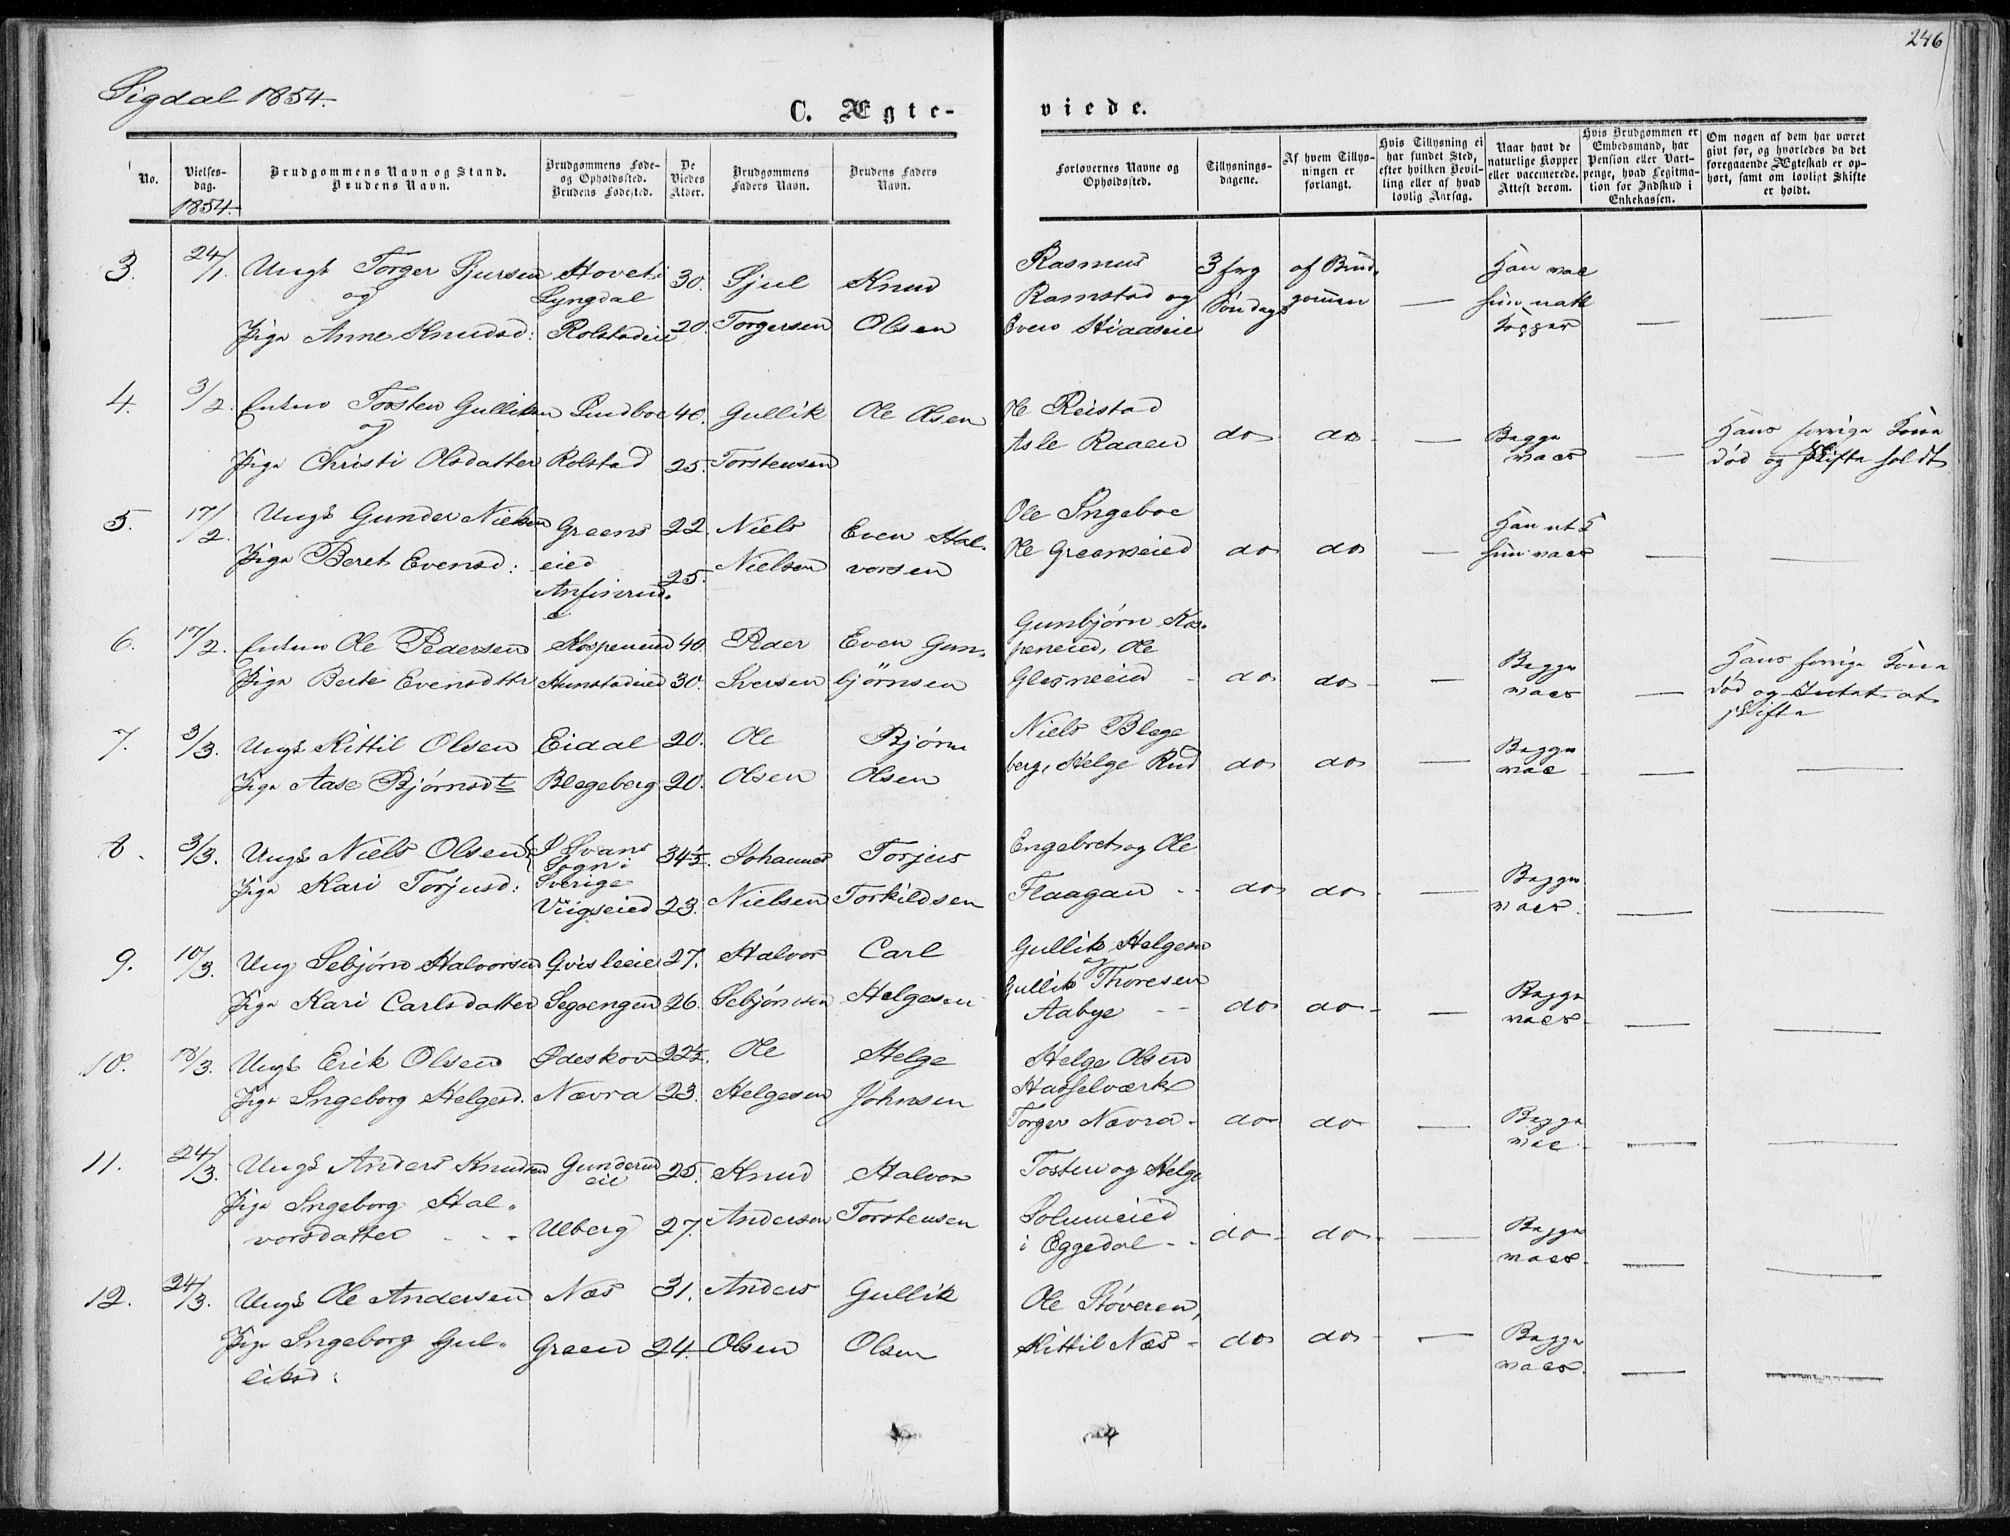 246
Sigdal 1854.
C. Ægte-
viede.
No.
Vielses-
dag.
1854.
Brudgommens Navn og Stand.
Brudens Navn.
Brudgommens Føde-
og Opholdssted.
Brudens Fødested.
De
Viedes
Alder.
Brudgommens
Faders Navn.
Brudens Faders
Navn.
Forlovernes Navne og
Opholdssted.
Tillysnings-
dagene.
Af hvem Tillys-
ningen er
forlangt.
Hvis Tillysning ei
har fundet Sted,
efter hvilken Bevil-
ling eller af hvad
lovlig Aarsag.
Naar havt de
naturlige Kopper
eller vaccinerede.
Attest derom.
Hvis Brudgommen er
Embedsmand, har
Pension eller Vart-
penge, hvad Legitima-
tion for Indskud i
Enkekassen.
Om nogen af dem har været
gift før, og hvorledes da det
foregaaende Ægteskab er op-
hørt, samt om lovligt Skifte
er holdt.
3. 24/1. Ungk Torger Gjulsen Hovet i 30. Gjul Knud
og Lyngdal
Pige Anne Knudsd: Rolstadeie 20. Torgersen Olsen
Rasmus 3 af Brud-
Ramstad og Søndage gommen — Han vac
Even Hiaaseie hun natl
Kopper — —
4. 3/2. Enkem Torsten Gulliksen Lindboe 40. Gullik Ole Olsen
og
Pige Christi Olsdatter Rolstad 25. Torstensen
Ole Reistad
Asle Raaen do do — Begge
vacc — Hans forrige Kone
død og skifte holdt
5. 17/2. Ungk Gunder Nielsen Greens 22. Niels Even Hal-
Pige Beret Evensd: eied 25. Nielsen vorsen
Anfinrud.
Ole Ingeboe
Ole Greenseied do do — Han ntl
hun vacc — —
6. 17/2. Enkem Ole Pedersen Kospeneied 40. Peder Even Gun-
Pige Berte Evensdtr Hunstadeied 30. Iversen bjørnsen
Gunbjørn Kos-
peneied, Ole
Glesneeied - do do — Begge
vacc — Hans forrige Kone
død og Intet at
skifte
7. 3/3. Ungk Kittil Olsen Eidal 20. Ole Bjørn
Pige Aase Bjørnsdt Blegeberg 20. Olsen Olsen
Niels Blege
berg, Helge Rud do do — Begge
vac — —
8. 3/3. Ungk Niels Olsen I Svans 34½. Johannes Torjus
Sogn i
Pige Kari Torjusd: Sverige
Viigseied 23. Nielsen Torkildsen
Engebret og Ole
Flaagan - - do do — Begge
vacc. — —
9. 10/3. Ung Sebjørn Halvorsen Qvisleeie 27. Halvor Carl
Pige Kari Carlsdatter Segvengen 26. Sebjørnsen Helgesen
Gullik Helgesen
og
Gullik Thoresen
Aabye - - do do — Begge
vacc. — —
10. 18/3. Ungk Erik Olsen Ødeskov 22½. Ole Helge
Pige Ingeborg Helgesd. Nævra 23. Helgesen Johnsen
Helge Olsen
Hasselværk
Torger Nævra - do do — Begge
vac — —
11. 24/3. Ungk Anders Knudsen Gunderud 25. Knud Halvor
eie
Pige Ingeborg Hal-
vorsdatter - - - Ulberg 27. Andersen Torstensen
Tosten og Helge
Solumeied
i Eggedal - - do do — Begge
vacc — —
12. 24/3. Ungk Ole Andersen Næs 31. Anders Gullik
Pige Ingeborg Gul- Green 24. Olsen Olsen
liksd:
Ole Støveren,
Kittil Næs - do do — Begge
vacc. — —